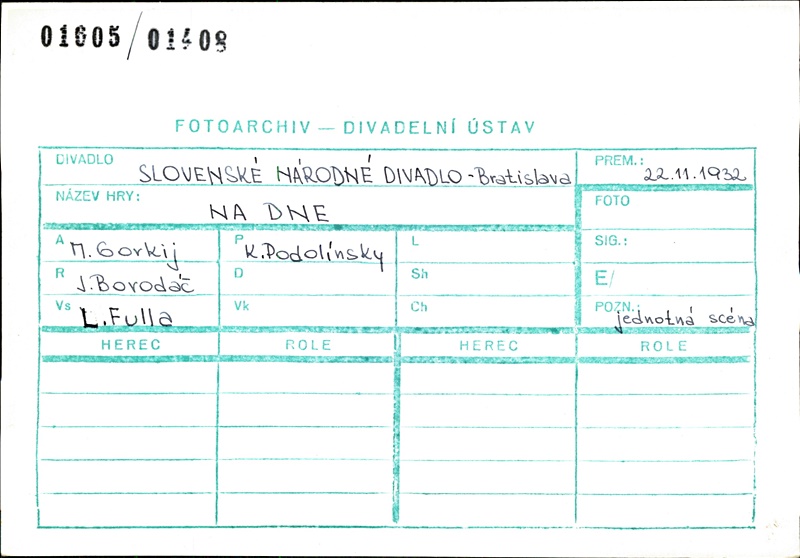 01605/01408
FOTOARCHIV — DIVADELNÍ ÚSTAV
DIVADLO SLOVENSKÉ NÁRODNÉ DIVADLO - Bratislava
PREM.: 22.11.1932
NÁZEV HRY: NA DNE
FOTO
A M. Gorkij
P K. Podolínsky
L
SIG.:
R J. Borodáč
D
Sh
E/
Vs L. Fulla
Vk
Ch
POZN.: jednotná scéna
HEREC ROLE HEREC ROLE